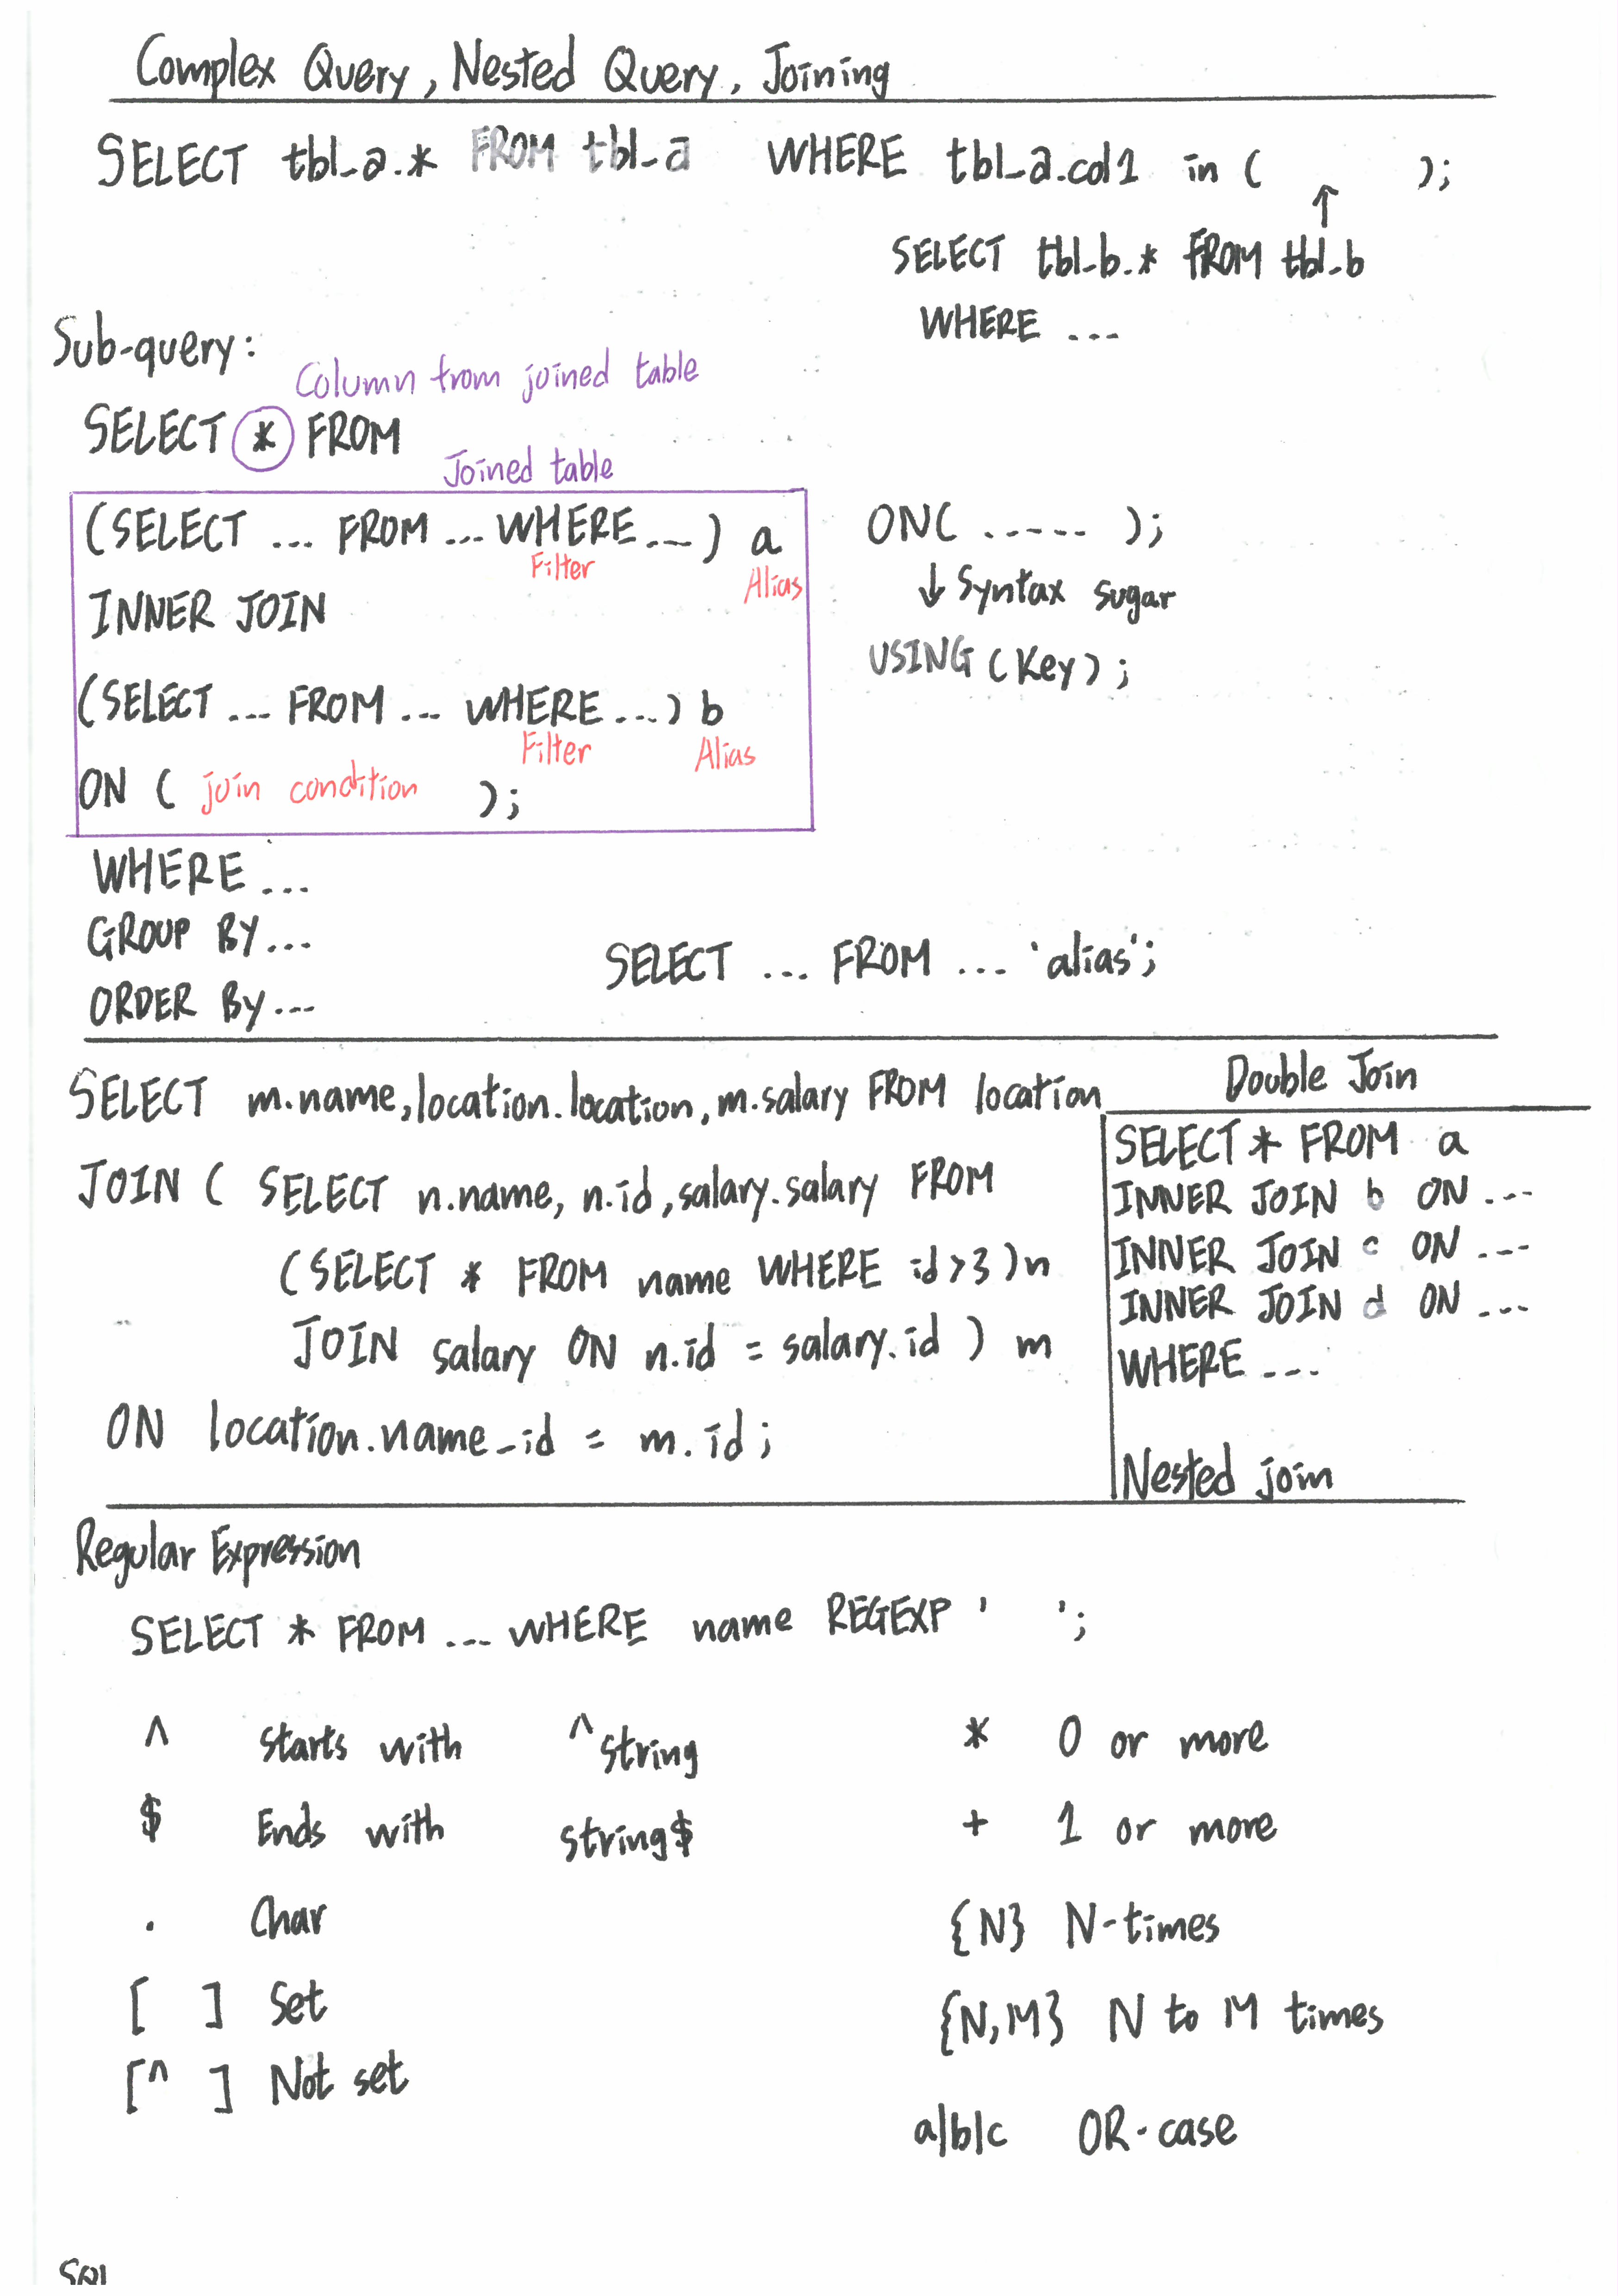 Complex Query, Nested Query, Joining
SELECT tbl_a.* FROM tbl_a WHERE tbl_a.col1 in ( );
↑
SELECT tbl_b.* FROM tbl_b
WHERE ...
Sub-query:
Column from joined table
SELECT * FROM
Joined table
(SELECT ... FROM ... WHERE ...) a
Filter
Alias
INNER JOIN
(SELECT ... FROM ... WHERE ...) b
Filter
Alias
ON ( join condition );
ON( ..... );
↓ Syntax sugar
USING (Key);
WHERE ...
GROUP BY ...
ORDER By ...
SELECT ... FROM ... 'alias';
SELECT m.name, location.location, m.salary FROM location
JOIN ( SELECT n.name, n.id, salary.salary FROM
(SELECT * FROM name WHERE id>3)n
JOIN salary ON n.id = salary.id ) m
ON location.name_id = m.id;
Double Join
SELECT * FROM a
INNER JOIN b ON ...
INNER JOIN c ON ...
INNER JOIN d ON ...
WHERE ...
Nested join
Regular Expression
SELECT * FROM ... WHERE name REGEXP ' ';
^ Starts with ^string
$ Ends with string$
. Char
[ ] Set
[^ ] Not set
* 0 or more
+ 1 or more
{N} N-times
{N,M} N to M times
a|b|c OR-case
SQL